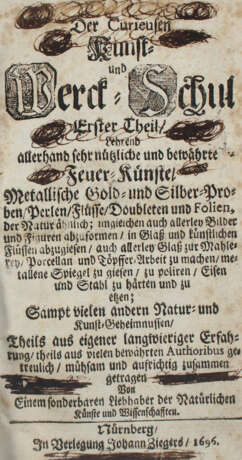 Der Curieusen
Kunst-
und
Werck-Schul
Erster Theil/
Lehrend
allerhand sehr nützliche und bewährte
Feuer-Künste/
Metallische Gold- und Silber-Pro-
ben/Perlen/Flüsse/Doubleten und Folien,
der Natur ähnlich; imgleichen auch allerley Bilder
und Figuren abzuformen/ in Glaß und künstlichen
Flüssen abzugiesen/ auch allerley Glaß zur Mahle-
rey/ Porcellan und Töpffer-Arbeit zu machen/ me-
tallene Spiegel zu giesen/ zu poliren/ Eisen
und Stahl zu härten und zu
etzen;
Sampt vielen andern Natur- und
Kunst-Geheimnussen/
Theils aus eigener langwieriger Erfah-
rung/ theils aus vielen bewährten Authoribus ge-
treulich/ mühsam und aufrichtig zusammen
getragen
Von
Einem sonderbaren Liebhaber der Natürlichen
Künste und Wissenschafften.
Nürnberg/
In Verlegung Johann Ziegers/ 1696.